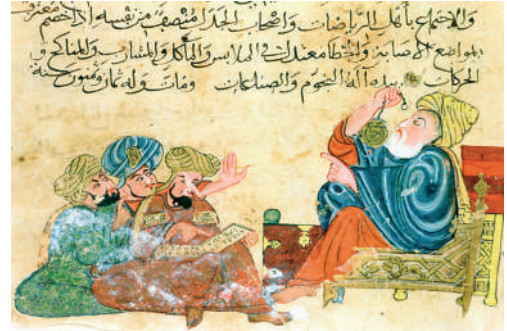 والاجتماع باهل الرياضات واصحاب الجدل منتصف من نفسه اذا خصم معترف
بمواضع الاصابة والخطا معتدل في الملابس والمآكل والمشارب والمناكح و
الحركات بيده آلة النجوم والصناعات ومات وله ثمان وستون سنة